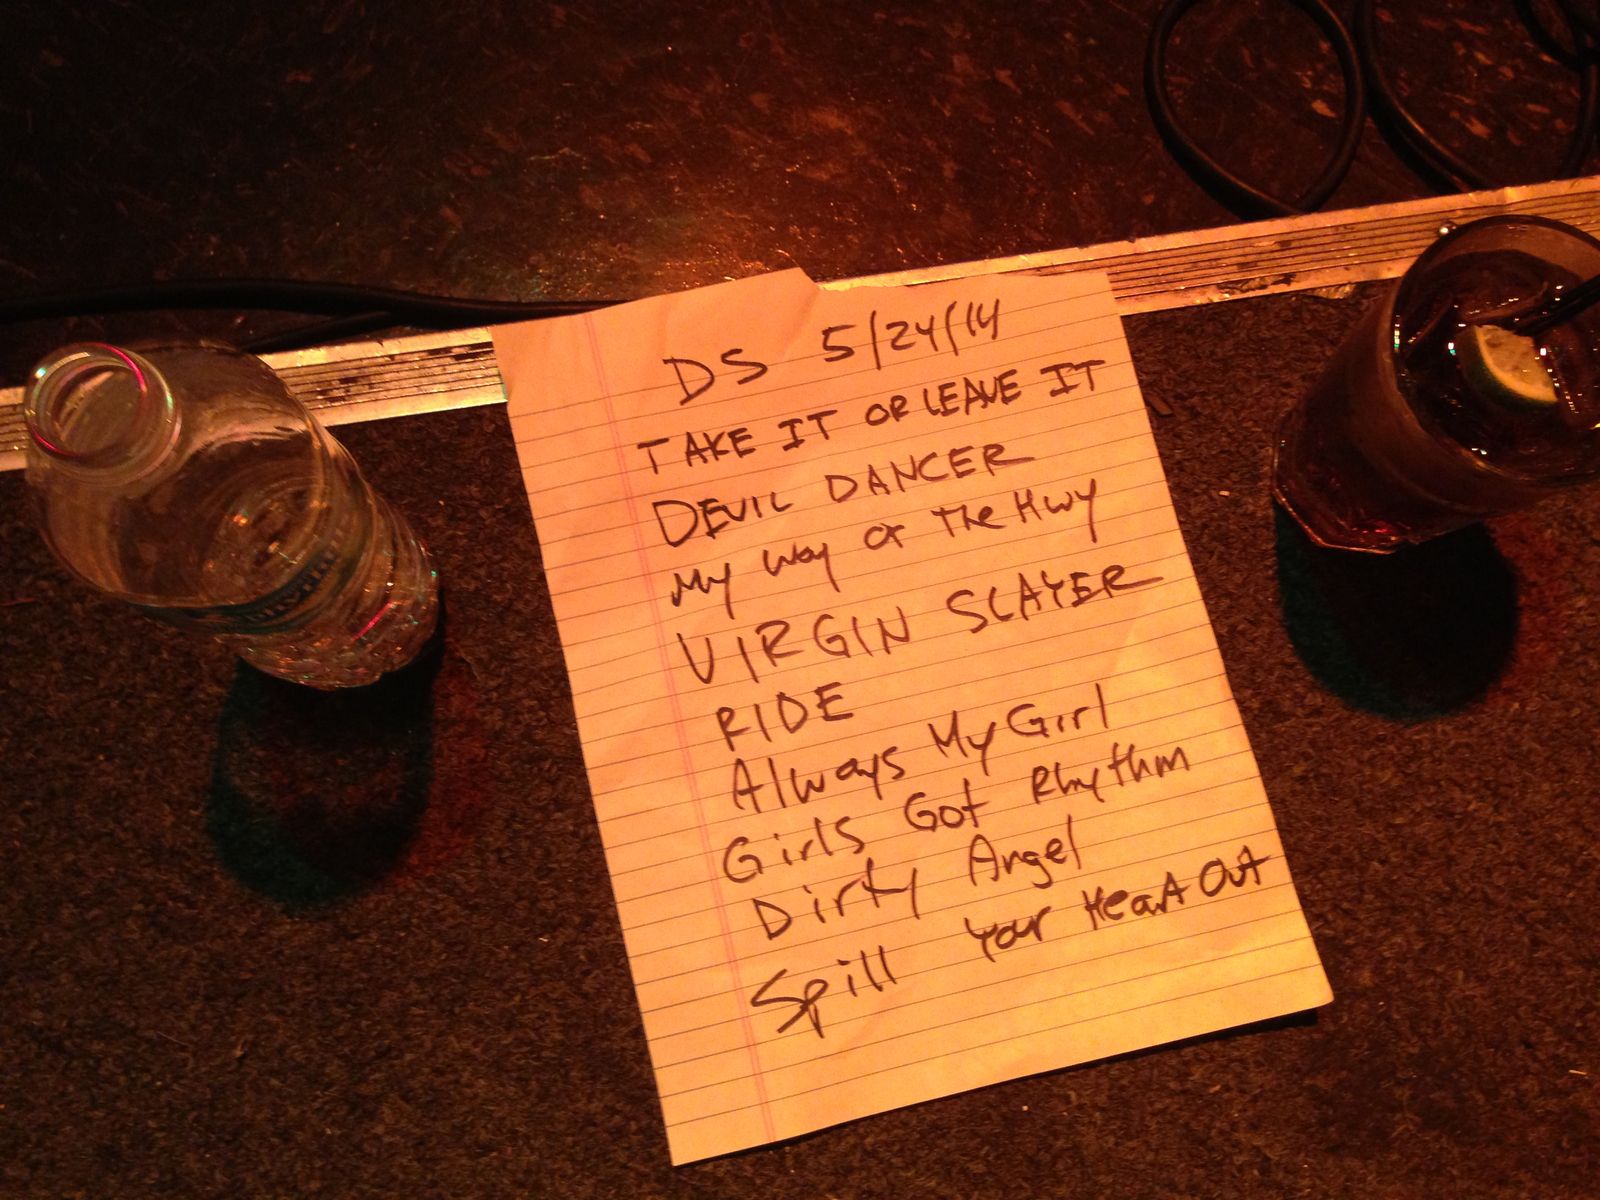 DS 5/24/14
TAKE IT OR LEAVE IT
DEVIL DANCER
My Way or The Hwy
VIRGIN SLAYER
RIDE
Always My Girl
Girls Got Rhythm
Dirty Angel
Spill Your Heart Out